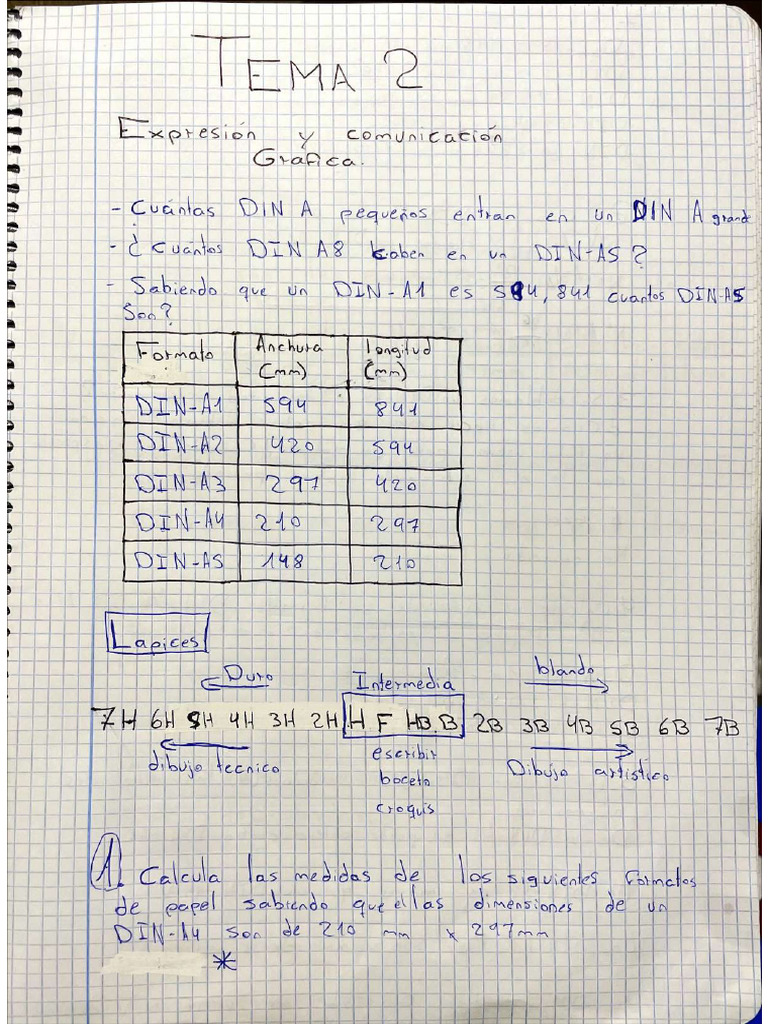 TEMA 2
Expresión y comunicación
Grafica.
- Cuántas DIN A pequeños entran en un DIN A grande
- ¿Cuántos DIN A8 kaben en un DIN-A5?
- Sabiendo que un DIN-A1 es 594, 841 cuantos DIN-A5
son?
Formato Anchura (mm) Longitud (mm)
DIN-A1 594 841
DIN-A2 420 594
DIN-A3 297 420
DIN-A4 210 297
DIN-A5 148 210
Lapices
Duro Intermedia blando
7H 6H 5H 4H 3H 2H H F HB B 2B 3B 4B 5B 6B 7B
dibujo tecnico escribir Dibujo artistico
boceto
croquis
1. Calcula las medidas de los siguientes formatos
de papel sabiendo que ellas dimensiones de un
DIN-A4 son de 210 mm x 297mm
*